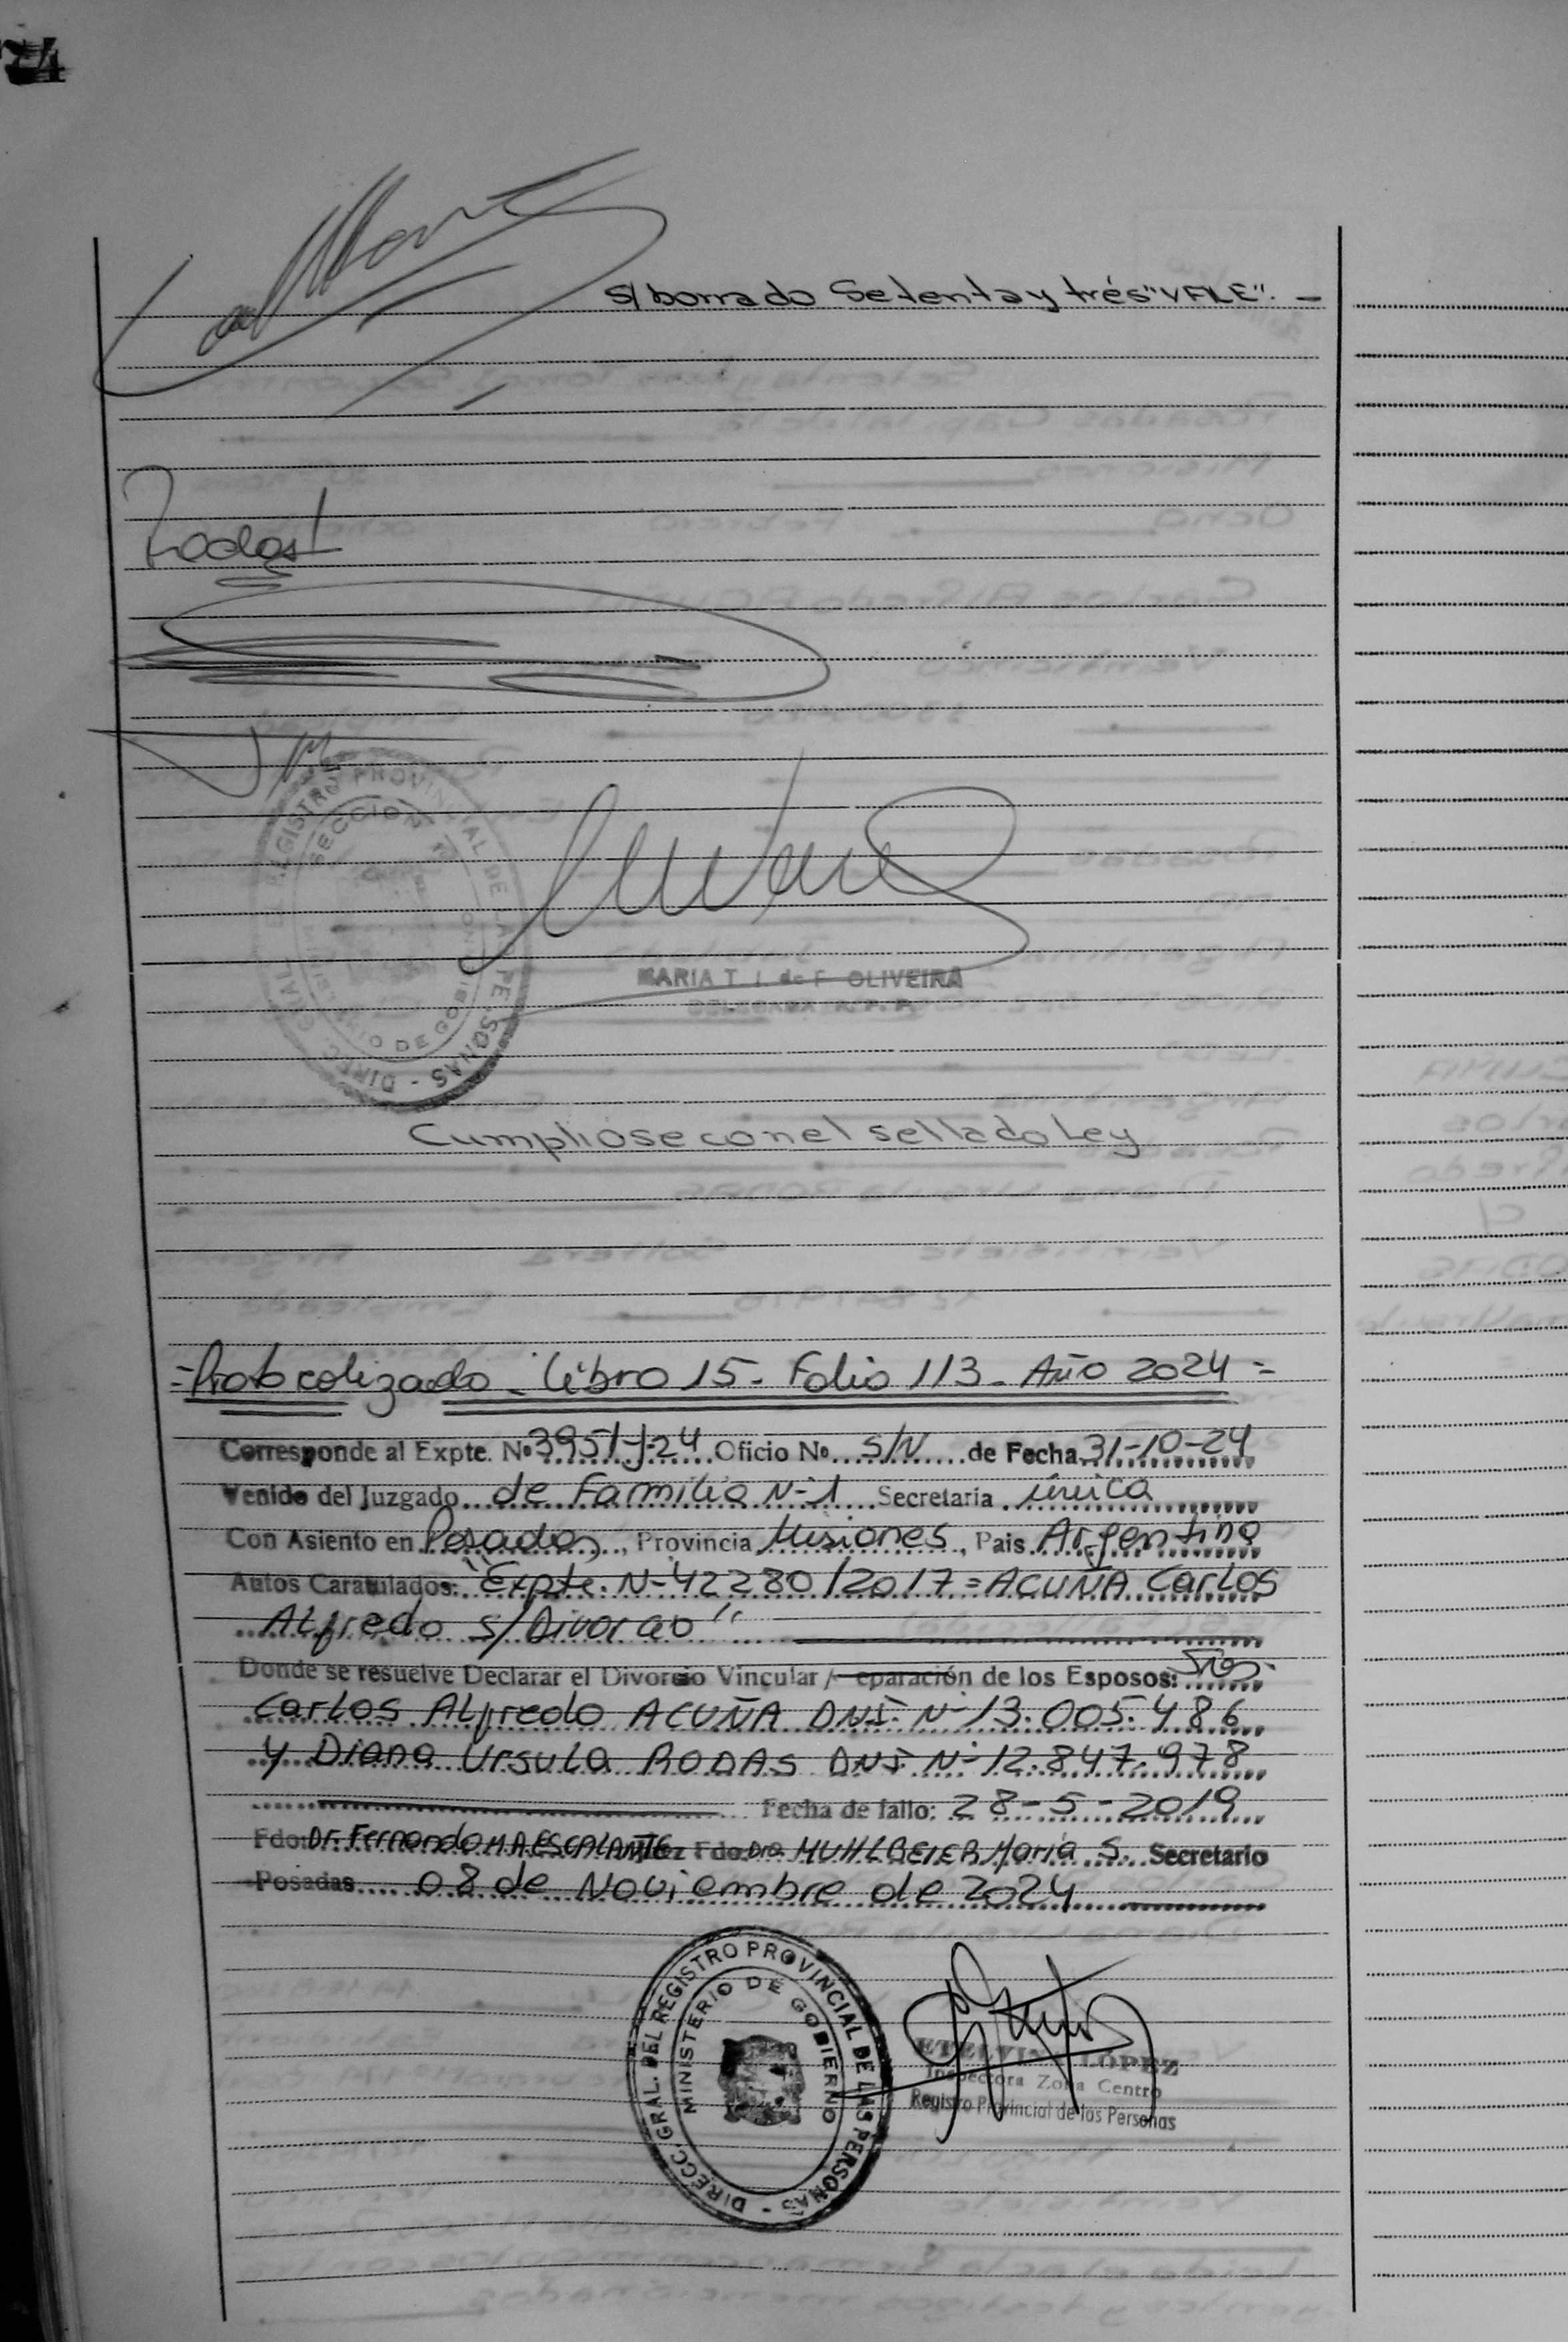 74
S/borrado Setenta y trés "VALE". —
Rodas
DIREC. GRAL. REGISTRO PROVINCIAL DE LAS PERSONAS
SECCION
MINISTERIO DE GOBIERNO
MARIA T. I. de F. OLIVEIRA
DELEGADA R.P.P.
Cumpliose con el sellado Ley
=Protocolizado - Libro 15 - Folio 113 - Año 2024=
Corresponde al Expte. Nº 3951-J-24 Oficio Nº S/N de Fecha 31-10-24
Venido del Juzgado de Familia Nº 1 Secretaria única
Con Asiento en Posadas, Provincia Misiones, Pais Argentina
Autos Caratulados: "Expte. Nº 42280/2017 = ACUÑA Carlos
Alfredo s/Divorcio"
Donde se resuelve Declarar el Divorcio Vincular / eparación de los Esposos: Sres.
Carlos Alfredo ACUÑA DNI. Nº 13.005.486
y Diana Ursula RODAS DNI Nº 12.847.978
Fecha de fallo: 28-5-2019
Fdo: Dr. Fernando M.A. ESCALANTE Juez Fdo. Dra MUHLBEIER Maria S. Secretario
Posadas 08 de Noviembre de 2024
DIRECC. GRAL. DEL REGISTRO PROVINCIAL DE LAS PERSONAS
MINISTERIO DE GOBIERNO
ETELVINA LOPEZ
Inspectora Zona Centro
Registro Provincial de las Personas